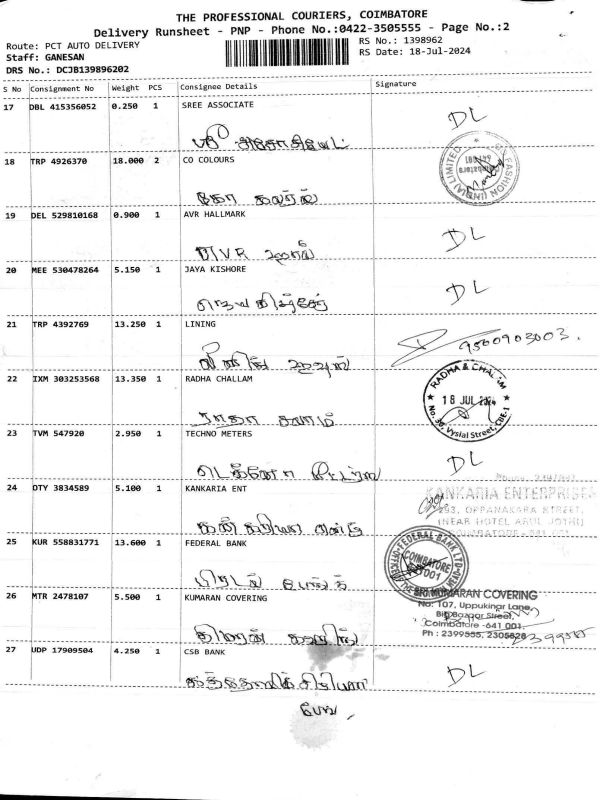 THE PROFESSIONAL COURIERS, COIMBATORE
Delivery Runsheet - PNP - Phone No.:0422-3505555 - Page No.:2
Route: PCT AUTO DELIVERY
RS No.: 1398962
Staff: GANESAN
RS Date: 18-Jul-2024
DRS No.: DCJB139896202
S No Consignment No Weight PCS Consignee Details Signature
17 DBL 415356052 0.250 1 SREE ASSOCIATE
DL
ஸ்ரீ அசோசியேட்
18 TRP 4926370 18.000 2 CO COLOURS
FASHION (INDIA) LIMITED
கோ கலர்ஸ்
19 DEL 529810168 0.900 1 AVR HALLMARK
DL
20 MEE 530478264 5.150 1 JAYA KISHORE
DL
ஜெய கிஷோர்
21 TRP 4392769 13.250 1 LINING
9500903003.
லினிங்
22 IXM 303253568 13.350 1 RADHA CHALLAM
RADHA & CHALLAM
18 JUL 2024
No. 30, Vysial Street, CBE-1
ராதா சலாம்
23 TVM 547920 2.950 1 TECHNO METERS
DL
டெக்னோ மீட்டர்ஸ்
24 OTY 3834589 5.100 1 KANKARIA ENT
KANKARIA ENTERPRISES
293, OPPANAKARA STREET,
(NEAR HOTEL ARUL JOTHI)
COIMBATORE - 641 001
25 KUR 558831771 13.600 1 FEDERAL BANK
FEDERAL BANK LTD
COIMBATORE
பெடரல் பேங்க்
26 MTR 2478107 5.500 1 KUMARAN COVERING
SRI KUMARAN COVERING
No: 107, Uppukinar Lane,
Big Bazaar Street,
Coimbatore - 641 001.
Ph : 2399555, 2305828
குமரன் கவரிங்
27 UDP 17909504 4.250 1 CSB BANK
DL